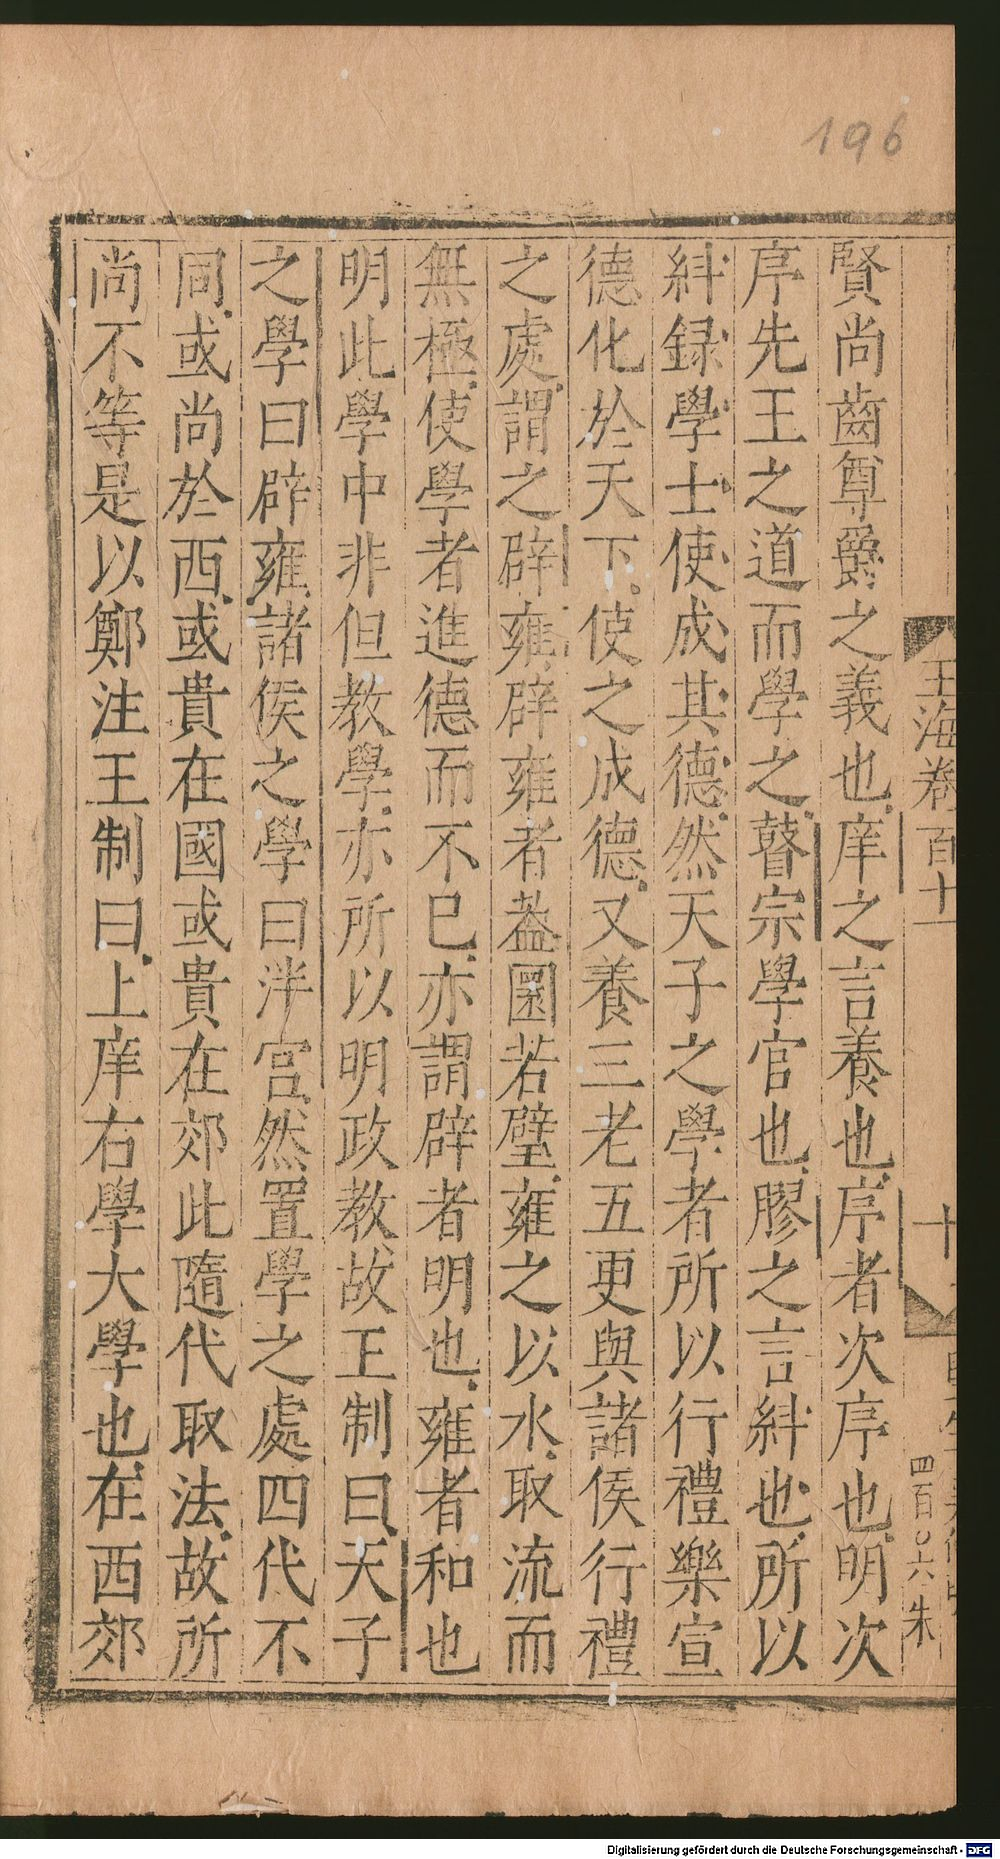 196
玉海卷百十一
十
四百〇六 朱
賢尚齒尊爵之義也庠之言養也序者次序也明次
序先王之道而學之瞽宗學官也膠之言糾也所以
糾録學士使成其德然天子之學者所以行禮樂宣
德化於天下使之成德又養三老五更與諸侯行禮
之處謂之辟雍辟雍者葢圜若璧雍之以水取流而
無極使學者進德而不已亦謂辟者明也雍者和也
明此學中非但教學亦所以明政教故王制曰天子
之學曰辟雍諸侯之學曰泮宫然置學之處四代不
同或尚於西或貴在國或貴在郊此隨代取法故所
尚不等是以鄭注王制曰上庠右學大學也在西郊
Digitalisierung gefördert durch die Deutsche Forschungsgemeinschaft - DFG